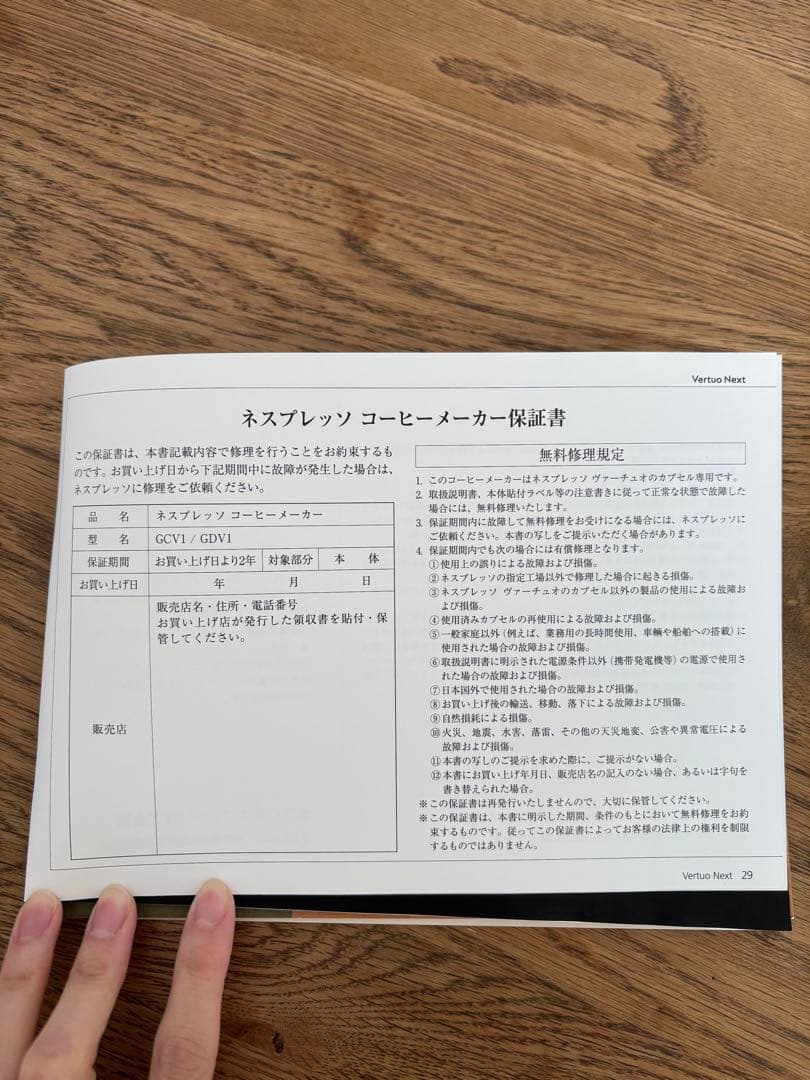 Vertuo Next
ネスプレッソ コーヒーメーカー保証書
この保証書は、本書記載内容で修理を行うことをお約束するも
のです。お買い上げ日から下記期間中に故障が発生した場合は、
ネスプレッソに修理をご依頼ください。
品 名 ネスプレッソ コーヒーメーカー
型 名 GCV1 / GDV1
保証期間 お買い上げ日より2年 対象部分 本 体
お買い上げ日 年 月 日
販売店
販売店名・住所・電話番号
お買い上げ店が発行した領収書を貼付・保
管してください。
無料修理規定
1. このコーヒーメーカーはネスプレッソ ヴァーチュオのカプセル専用です。
2. 取扱説明書、本体貼付ラベル等の注意書きに従って正常な状態で故障した
場合には、無料修理いたします。
3. 保証期間内に故障して無料修理をお受けになる場合には、ネスプレッソに
ご依頼ください。本書の写しをご提示いただく場合があります。
4. 保証期間内でも次の場合には有償修理となります。
①使用上の誤りによる故障および損傷。
②ネスプレッソの指定工場以外で修理した場合に起きる損傷。
③ネスプレッソ ヴァーチュオのカプセル以外の製品の使用による故障お
よび損傷。
④使用済みカプセルの再使用による故障および損傷。
⑤一般家庭以外（例えば、業務用の長時間使用、車輌や船舶への搭載）に
使用された場合の故障および損傷。
⑥取扱説明書に明示された電源条件以外（携帯発電機等）の電源で使用さ
れた場合の故障および損傷。
⑦日本国外で使用された場合の故障および損傷。
⑧お買い上げ後の輸送、移動、落下による故障および損傷。
⑨自然損耗による損傷。
⑩火災、地震、水害、落雷、その他の天災地変、公害や異常電圧による
故障および損傷。
⑪本書の写しのご提示を求めた際に、ご提示がない場合。
⑫本書にお買い上げ年月日、販売店名の記入のない場合、あるいは字句を
書き替えられた場合。
※この保証書は再発行いたしませんので、大切に保管してください。
※この保証書は、本書に明示した期間、条件のもとにおいて無料修理をお約
束するものです。従ってこの保証書によってお客様の法律上の権利を制限
するものではありません。
Vertuo Next 29